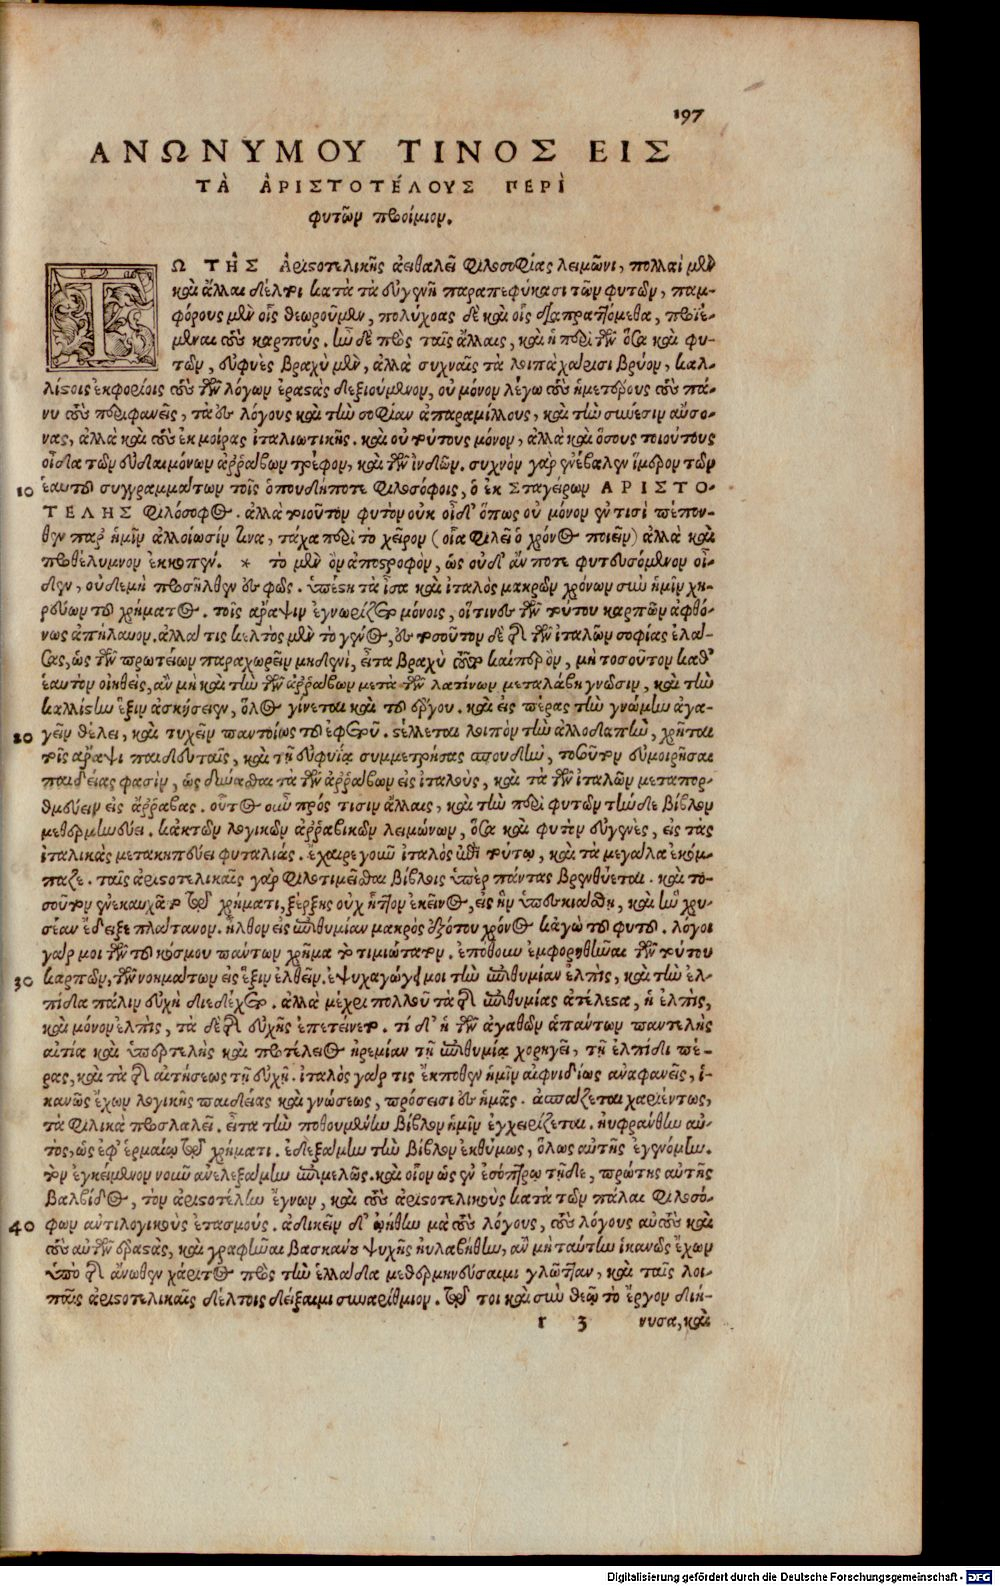 197
ΑΝΩΝΥΜΟΥ ΤΙΝΟΣ ΕΙΣ
ΤᾺ ἈΡΙΣΤΟΤΈΛΟΥΣ ΠΕΡῚ
φυτῶν προοίμιον.
ΤΩ ΤΗ͂Σ Ἀριστοτελικῆς ἀειθαλεῖ φιλοσοφίας λειμῶνι, πολλαὶ μὲν
καὶ ἄλλαι δέλτοι κατὰ τὰ εὐγενῆ παραπεφύκασι τῶν φυτῶν, παμ-
φόρους μὲν οἷς θεωρούμεν, πολύχοας δὲ καὶ οἷς διαπραττόμεθα, προϊέ-
μεναι τοὺς καρπούς. ἣν δὲ πρὸς ταῖς ἄλλαις, καὶ ἡ περὶ τῶν ὅσα καὶ φυ-
τῶν, εὐφυὲς βραχὺ μὲν, ἀλλὰ συχναῖς τὰ λοιπὰ χάρισι βρύον, καλ-
λίστοις ἐκφορίοις τοὺς τῶν λόγων ἐραστὰς δεξιούμενον, οὐ μόνον λέγω τοὺς ἡμετέρους τοὺς πά-
νυ τοὺς περιφανεῖς, τὰ εἰς λόγους καὶ τὴν σοφίαν ἀπαραμίλλους, καὶ τὴν σύνεσιν αὔσο-
νας, ἀλλὰ καὶ τοὺς ἐκ μοίρας ἰταλιωτικῆς. καὶ οὐ τούτους μόνον, ἀλλὰ καὶ ὅσους τοιούτους
οἶδα τῶν εὐδαιμόνων ἀρράβων τρέφον, καὶ τῶν ἰνδῶν. συχνὸν γὰρ ἐνέβαλεν ἵμερον τῶν
10 ἑαυτοῦ συγγραμμάτων τοῖς ὁπουδήποτε φιλοσόφοις, ὁ ἐκ Σταγείρων ΑΡΙΣΤΟ-
ΤΕΛΗΣ φιλόσοφος. ἀλλὰ τοιοῦτον φυτὸν οὐκ οἶδ' ὅπως οὐ μόνον ἐν τισὶ πέπον-
θεν παρ' ἡμῖν ἀλλοίωσίν τινα, τάχα περὶ τὸ χεῖρον (οἷα φιλεῖ ὁ χρόνος ποιεῖν) ἀλλὰ καὶ
προθέλυμνον ἐκκοπέν. * τὸ μὲν ὂν ἀποστροφὸν, ὡς οὐδ' ἄν ποτε φυτευσόμενον οἶ-
δεν, οὐδεμὴ προσῆλθεν εἰς φῶς. ὑπέστη τὰ ἶσα καὶ ἰταλὸς μακρῶν χρόνων σὺν ἡμῖν χη-
ρεύων τοῦ χρήματος. τοῖς ἄραψιν ἐγνωρίζετο μόνοις, οἵτινες τῶν τούτου καρπῶν ἀφθό-
νως ἀπήλαυον. ἀλλά τις κελτὸς μὲν τὸ γένος, εἰς τοσοῦτον δὲ τῆς τῶν ἰταλῶν σοφίας ἐλά-
σας, ὡς τῶν πρωτείων παραχωρεῖν μηδενὶ, εἶτα βραχὺ τοῦτο καίπερ ὂν, μὴ τοσοῦτον καθ'
ἑαυτὸν οἰηθεὶς, ἂν μὴ καὶ τὴν τῶν ἀρράβων μετὰ τῶν λατίνων μεταλάβῃ γνῶσιν, καὶ τὴν
καλλίστην ἕξιν ἀσκήσειεν, ὅλος γίνεται καὶ τοῦ ἔργου. καὶ εἰς πέρας τὴν γνώμην ἀγα-
20 γεῖν θέλει, καὶ τυχεῖν παντοίως τοῦ ἐφετοῦ. στέλλεται λοιπὸν τὴν ἀλλοδαπὴν, χρῆται
τοῖς ἄραψι παιδευταῖς, καὶ τῇ εὐφυΐᾳ συμμετρήσας σπουδὴν, τοσοῦτον εὐμοιρῆσαι
παιδείας φασὶν, ὡς δύνασθαι τὰ τῶν ἀρράβων εἰς ἰταλοὺς, καὶ τὰ τῶν ἰταλῶν μεταπορ-
θμεύειν εἰς ἄρραβας. οὗτος οὖν πρός τισιν ἄλλαις, καὶ τὴν περὶ φυτῶν τήνδε βίβλον
μεθερμηνεύει. κἀκ τῶν λογικῶν ἀρραβικῶν λειμώνων, ὅσα καὶ φυτὸν εὐγενὲς, εἰς τὰς
ἰταλικὰς μετακηπεύει φυταλιάς. ἔχαιρε γοῦν ἰταλὸς ἐπὶ τούτῳ, καὶ τὰ μεγάλα ἐκόμ-
παζε. ταῖς ἀριστοτελικαῖς γὰρ φιλοτιμεῖσθαι βίβλοις ὑπὲρ πάντας βρενθύεται. καὶ το-
σοῦτον ἐνεκαυχᾶτο τῷ χρήματι, ξέρξης οὐχ ἧττον ἐκεῖνος, εἰς ἣν ὑπεσκιάσθη, καὶ ἣν χρυ-
σέαν ἔδειξε πλάτανον. ἦλθον εἰς ἐπιθυμίαν μακρὸς ἐξότου χρόνος κἀγὼ τοῦ φυτοῦ. λόγοι
γάρ μοι τῶν τοῦ κόσμου πάντων χρῆμα τὸ τιμιώτατον. ἐπόθουν ἐμφορηθῆναι τῶν τούτου
30 καρπῶν, τῶν νοημάτων εἰς ἕξιν ἐλθεῖν. ἐψυχαγώγει μοι τὴν ἐπιθυμίαν ἐλπὶς, καὶ τὴν ἐλ-
πίδα πάλιν εὐχὴ διεδέχετο. ἀλλὰ μέχρι πολλοῦ τὰ τῆς ἐπιθυμίας ἀτέλεστα, ἡ ἐλπὶς,
καὶ μόνον ἐλπὶς, τὰ δὲ τῆς εὐχῆς ἐπετείνετο. τί δ' ἡ τῶν ἀγαθῶν ἁπάντων παντελὴς
αἰτία καὶ ὑπερτελὴς καὶ προτέλειος ἠρεμίαν τῇ ἐπιθυμίᾳ χορηγεῖ, τῇ ἐλπίδι πέ-
ρας, καὶ τὰ τῆς αἰτήσεως τῇ εὐχῇ. ἰταλὸς γάρ τις ἔκποθεν ἡμῖν αἰφνιδίως ἀναφανεὶς, ἱ-
κανῶς ἔχων λογικῆς παιδείας καὶ γνώσεως, πρόσεισι εἰς ἡμᾶς. ἀσπάζεται χαριέντως,
τὰ φιλικὰ προσλαλεῖ. εἶτα τὴν ποθουμένην βίβλον ἡμῖν ἐγχειρίζεται. ηὐφράνθην αὐ-
τὸς, ὡς ἐφ' ἑρμαίῳ τῷ χρήματι. ἐδεξάμην τὴν βίβλον ἐκθύμως, ὅλως αὐτῆς ἐγενόμην.
τὸν ἐγκείμενον νοῦν ἀνελεξάμην ἐπιμελῶς. καὶ οἷον ὡς ἐν ἐσόπτρῳ τῇδε, πρώτης αὐτῆς
βαλβίδος, τὸν ἀριστοτέλην ἔγνων, καὶ τοὺς ἀριστοτελικοὺς κατὰ τῶν πάλαι φιλοσό-
40 φων αὐτιλογικοὺς ἐτασμούς. ἀδικεῖν δ' ᾠήθην μὰ τοὺς λόγους, τοὺς λόγους αὐτοὺς καὶ
τοὺς αὐτῶν ἐραστὰς, καὶ γραφῆναι βασκάνου ψυχῆς ηὐλαβήθην, ἂν μὴ ταύτην ἱκανῶς ἔχων
ὑπὸ τῆς ἄνωθεν χάριτος πρὸς τὴν ἑλλάδα μεθερμηνεύσαιμι γλῶτταν, καὶ ταῖς λοι-
παῖς ἀριστοτελικαῖς δέλτοις δείξαιμι συναρίθμιον. τῷ τοι καὶ σὺν θεῷ τὸ ἔργον διή-
r 3 νυσα, καὶ
Digitalisierung gefördert durch die Deutsche Forschungsgemeinschaft - DFG